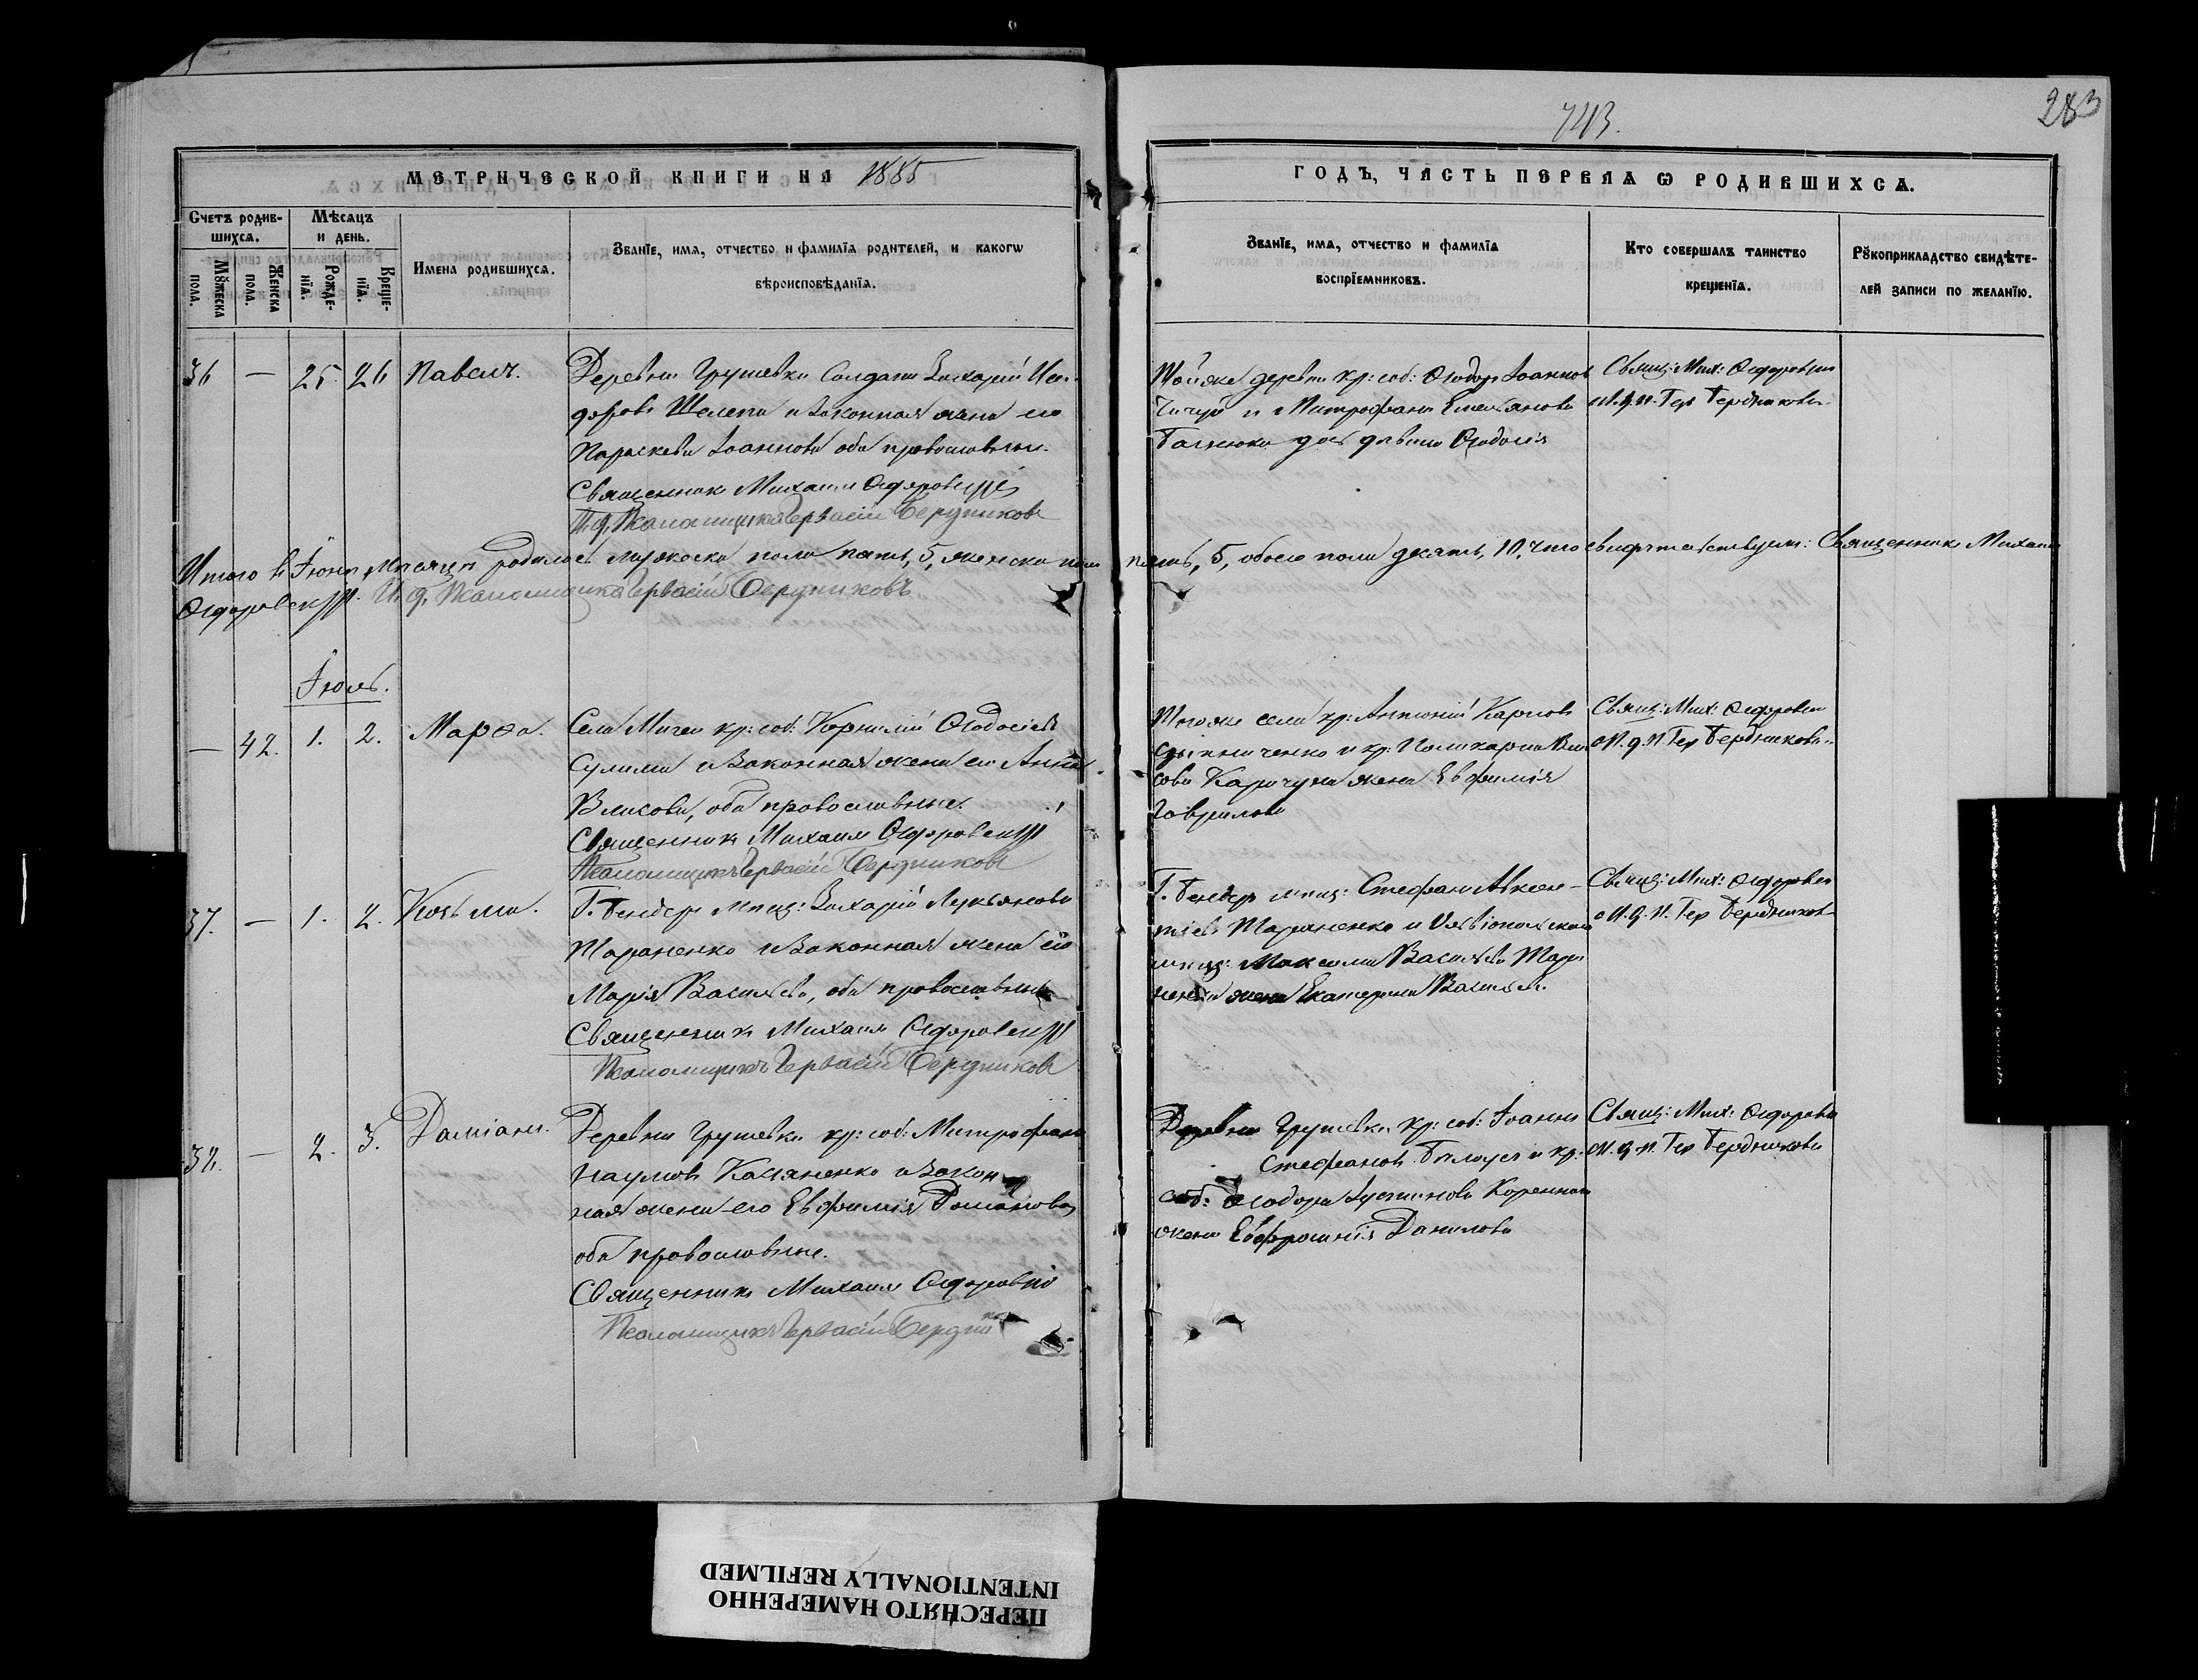 743.
283
МЕТРИЧЕСКОЙ КНИГИ НА 1885
ГОДЪ, ЧАСТЬ ПЕРВАЯ Ѡ РОДИВШИХСѦ.
Счетъ родив-
шихсѧ.
Мѣсѧцъ
и день.
Мꙋжеска
пола.
Женска
пола.
Рожде-
нїѧ.
Креще-
нїѧ.
Имена родившихсѧ.
Званїе, имѧ, отчество и фамилїѧ родителей, и какогѡ
вѣроисповѣданїѧ.
Званїе, имѧ, отчество и фамилїѧ
воспрїемниковъ.
Кто совершалъ таинство
крещенїѧ.
Рꙋкоприкладство свидѣте-
лей записи по желанїю.
36 — 25. 26 Павелъ.
Деревни Грушевки Солдатъ Захарій Иси-
доровъ Шелепа и законная жена его
Параскева Іоаннова оба православные.
Священникъ Михаилъ Ѳедоровскій
И. д. Псаломщика Гервасій Бердниковъ
Той же деревни кр: соб: Ѳеодоръ Іоанновъ
и Митрофана Емельянова
дочь дѣвица Ѳеодосія
Свящ: Мих: Ѳедоровскій
и И. д. п. Гер Бердниковъ
Итого въ Іюнѣ мѣсяцѣ родилось мужеска пола пять, 5, женска пола пять, 5, обоего пола десять, 10, что свидѣтельствуемъ: Священникъ Михаилъ
Ѳедоровскій. И. д. Псаломщика Гервасій Бердниковъ
Іюль.
— 42. 1. 2. Марѳа.
Села Мигеи кр: соб: Корнилій Ѳеодосіевъ
Сулима и законная жена его Анна
Власова, оба православные.
Священникъ Михаилъ Ѳедоровскій
Псаломщикъ Гервасій Бердниковъ
Того же села кр: Антоній Карповъ
и кр: Поликарпа Вла
сова Карачуна жена Евфимія
Гаврилова
Свящ: Мих: Ѳедоровскій
и И. д. п. Гер Бердниковъ
37. — 1. 2. Косьма.
Г. Бендеръ мѣщ: Захарій Лукьяновъ
Тараненко и законная жена его
Марія Васильева, оба православные
Священникъ Михаилъ Ѳедоровскій
Псаломщикъ Гервасій Бердниковъ
Г. Бендеръ мѣщ: Стефанъ Авксен-
тіевъ Тараненко и Ольвіопольскаго
мѣщ: Максима Васильева Тара
ненка жена Екатерина Васильева.
Свящ: Мих: Ѳедоровскій
и И. д. п. Гер Бердниковъ
38. — 2. 3. Даміанъ.
Деревни Грушевки кр: соб: Митрофанъ
Наумовъ Касяненко и закон
ная жена его Евфимія Романова,
оба православные.
Священникъ Михаилъ Ѳедоровскій
Псаломщикъ Гервасій Бердниковъ
Деревни Грушевки кр: соб: Іоаннъ
Стефановъ Бѣлоусъ и кр:
соб: Ѳеодора Іустинова
жена Евфросинія Данилова
Свящ: Мих: Ѳедоровскій
и И. д. п. Гер Бердниковъ
ПЕРЕСНЯТО НАМЕРЕННО
INTENTIONALLY REFILMED